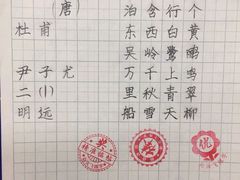 个黄鹂鸣翠柳
行白鹭上青天
含西岭千秋雪
泊东吴万里船
(唐)
杜甫
尹子尤
二(1)
明远